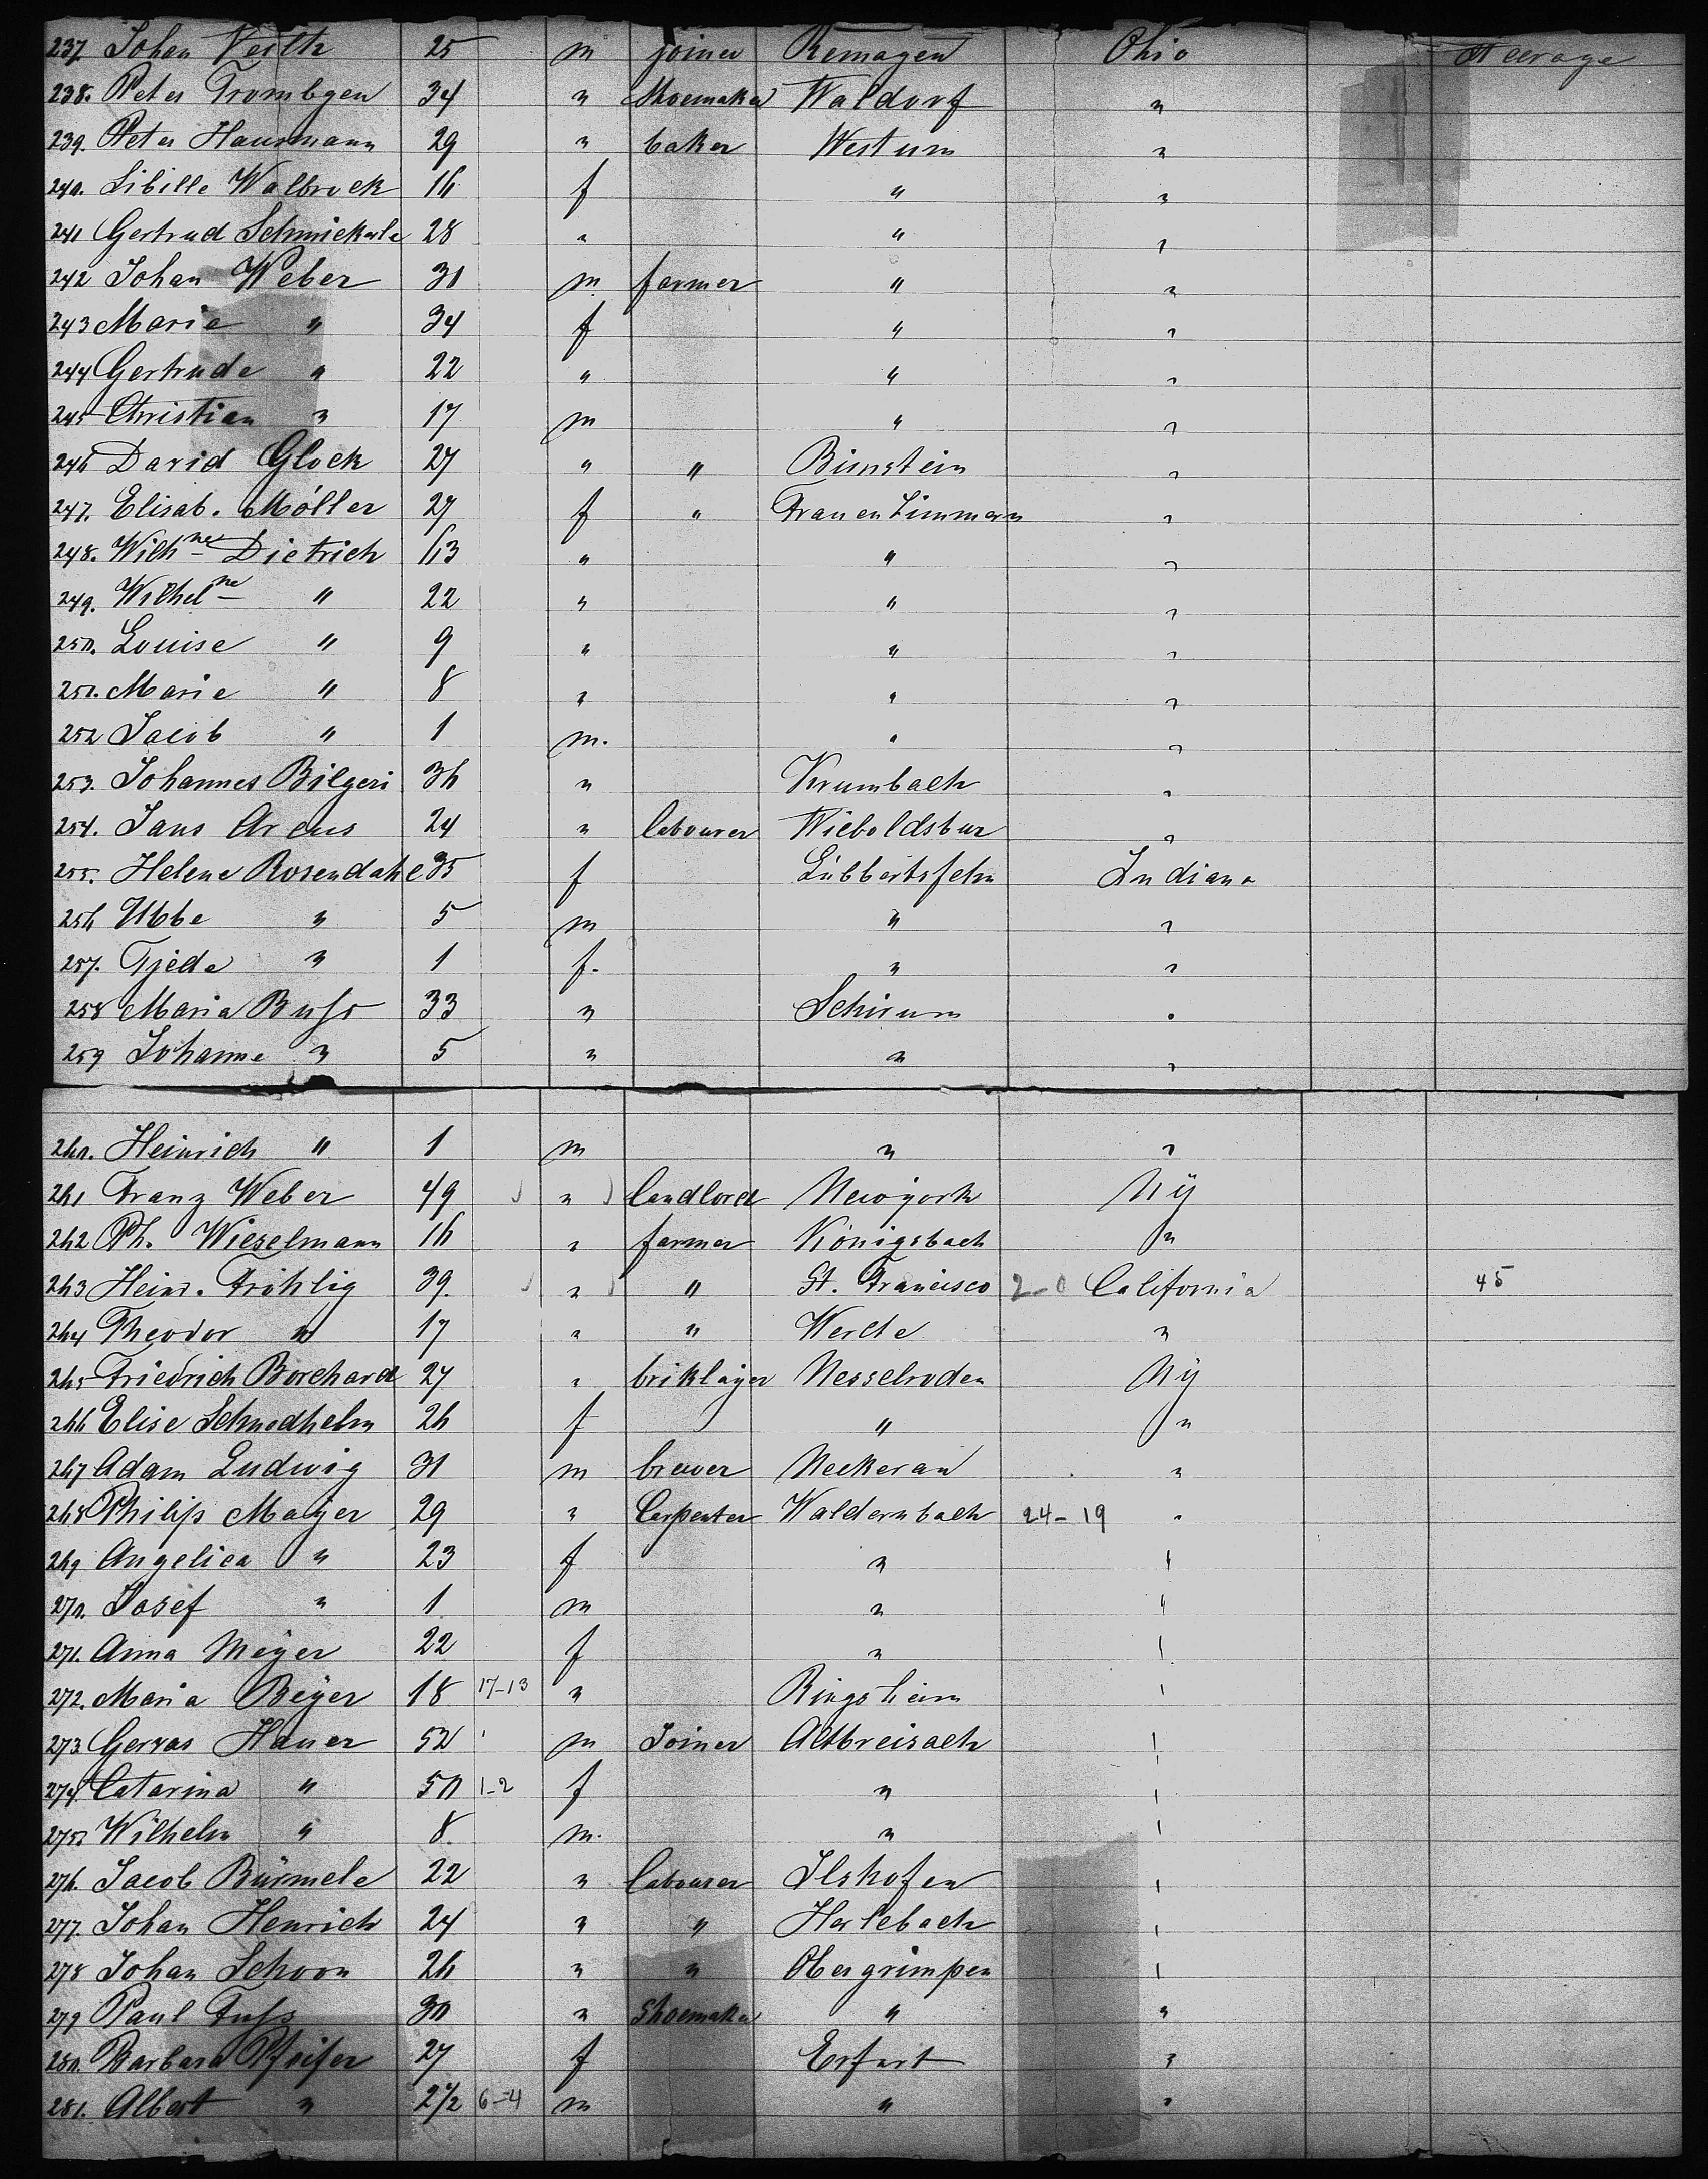 237. Johan Veith 25 m joiner Remagen Ohio Steerage
238. Peter Trombgen 34 " Shoemaker Waldorf "
239. Peter Hausmann 29 " baker Westum "
240. Sibille Walbrock 16 f " "
241 Gertrud Schmickerle 28 " " "
242 Johan Weber 30 m farmer " "
243 Marie " 34 f " "
244 Gertrude " 22 " " "
245 Christian " 17 m " "
246 David Glock 27 " " Birnstein "
247. Elisab. Möller 27 f " Frauen Zimmern "
248. Wilhne Dietrich 63 " " "
249. Wilhelne " 22 " " "
250. Louise " 9 " " "
251. Marie " 8 " " "
252 Jacob " 1 m. " "
253. Johannes Bilgeri 36 " Krumbach "
254. Jans Arens 24 " labourer Wieboldsbur "
255. Helene Rosendahl 35 f Lübbertsfehn Indiana
256 Ubbe " 5 m " "
257. Tjede " 1 f. " "
258 Maria Buss 33 " Schirum "
259 Johanne " 5 " " "
260. Heinrich " 1 m " "
261 Franz Weber 49 " landlord Newyork NY
262 Ph. Wieselmann 16 " farmer Königsbach "
263 Heinr. Fröhlig 39. " " St. Francisco 2-0 California 45
264 Theodor " 17 " " Werlte "
265 Friedrich Borchard 27 " briklayer Nesselroden NY
266 Elise Schmedhelm 26 f " "
267 Adam Ludwig 31 m brewer Neckerau "
268 Philip Mayer 29 " Carpenter Waldernbach 24-19 "
269 Angelica " 23 f " "
270. Josef " 1 m " "
271. Anna Meyer 22 f " "
272. Maria Beyer 18 17-13 " Ringsheim "
273 Gervas Hauer 52 m Joiner Altbreisach "
274 Catarina " 50 1-2 f " "
275. Wilhelm " 8. m. " "
276. Jacob Bürmele 22 " labourer Ilshofen "
277. Johan Henrich 24 " " Herlebach "
278 Johan Schoon 26 " " Obergrimpen "
279 Paul Fuss 30 " Shoemaker " "
280. Barbara Pfeifer 27 f Erfurt "
281. Albert " 2 1/2 6-4 m " "